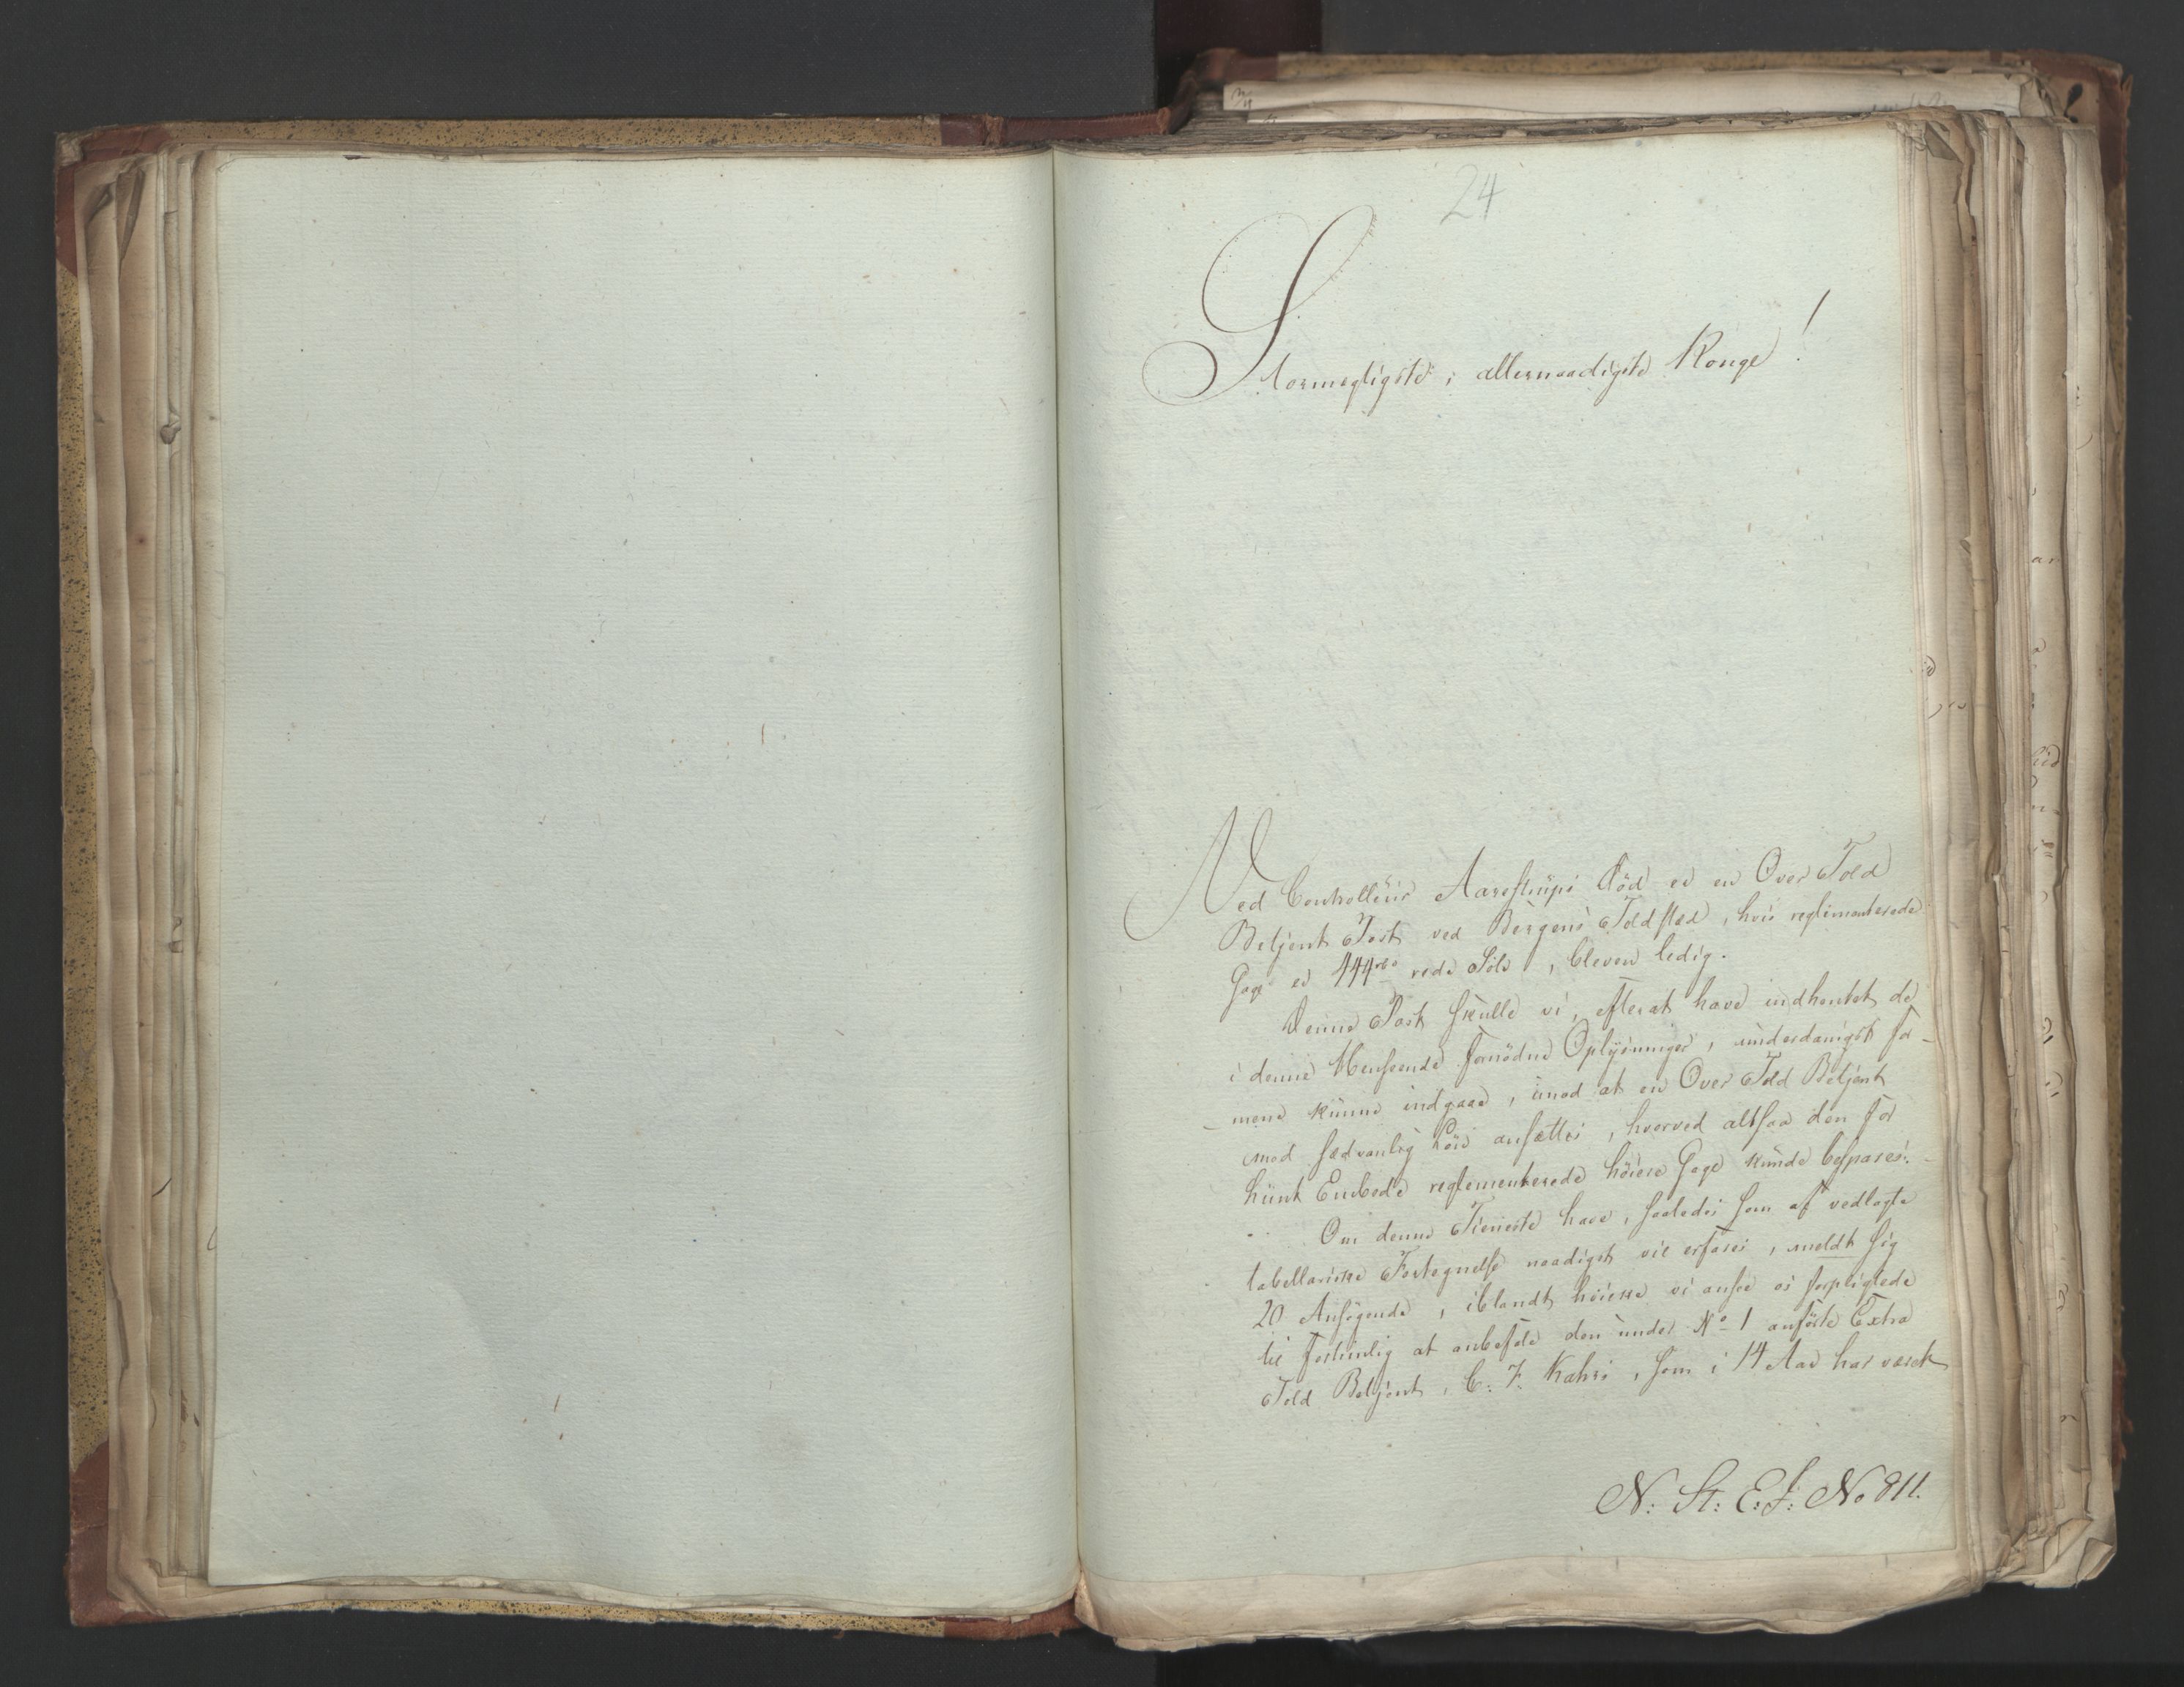 24
Stormægtigste, allernaadigste Konge!
Ved Controlleur Aarestrups Död er en Over Told
Betjent Post ved Bergens Toldsted, hvis reglementerede
Gage er 444 rbd rede Sölv, bleven ledig.
Denne Post skulle vi, efterat have indhentet de
i denne Henseende fornödne Oplysninger, underdanigst for-
-mene kunne indgaae, imod at en Over Told Betjent
med sædvanlig Lön ansættes, hvorved altsaa den for
hiint Embede reglementerede höiere Gage kunde bespares.
Om denne Tieneste have, saaledes som af vedlagte
tabellariske Fortegnelse naadigst vil erfares, meldt sig
20 Ansögende, iblandt hvilke vi ansee os forpligtede
til fortrinlig at anbefale den under No 1 anförte Extra
Told Betjent, C: F. Kahrs, som i 14 Aar har været
N: St: E: J: No 811.